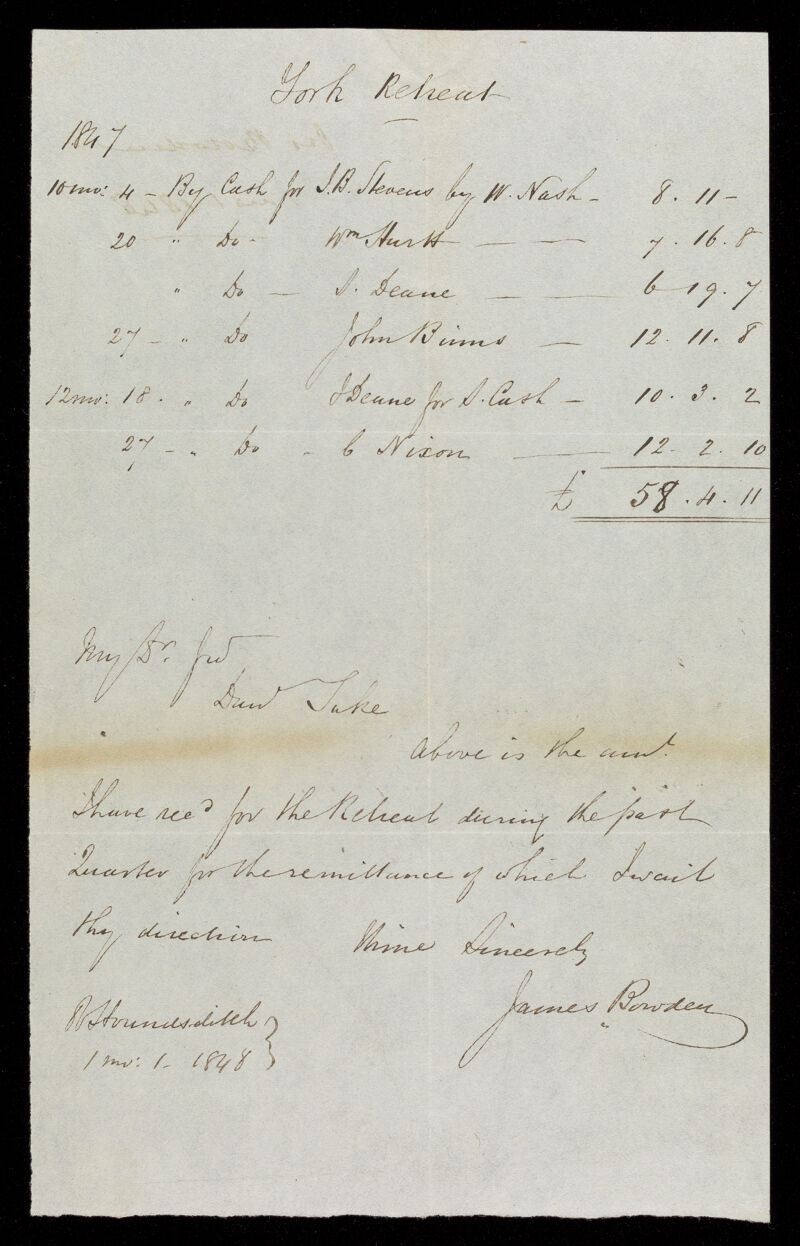 York Retreat
1847
10mo: 4 - By Cash for J.B. Stevens by W. Nash - 8. 11 -
20 " Do - Wm Hurtt - - 7. 16. 8
" Do - S. Deane - - 6 19. 7
27 - " Do John Binns - 12. 11. 8
12mo: 18. " Do J Deane for S. Cash - 10. 3. 2
27 - " Do - C Nixon - 12. 2. 10
£ 58. 4. 11
My Dr. frd
Danl Tuke
Above is the amt.
I have recd for the Retreat during the past
Quarter for the remittance of which I wait
thy direction Thine Sincerely
James Bowden
Houndsditch
1 mo: 1 - 1848